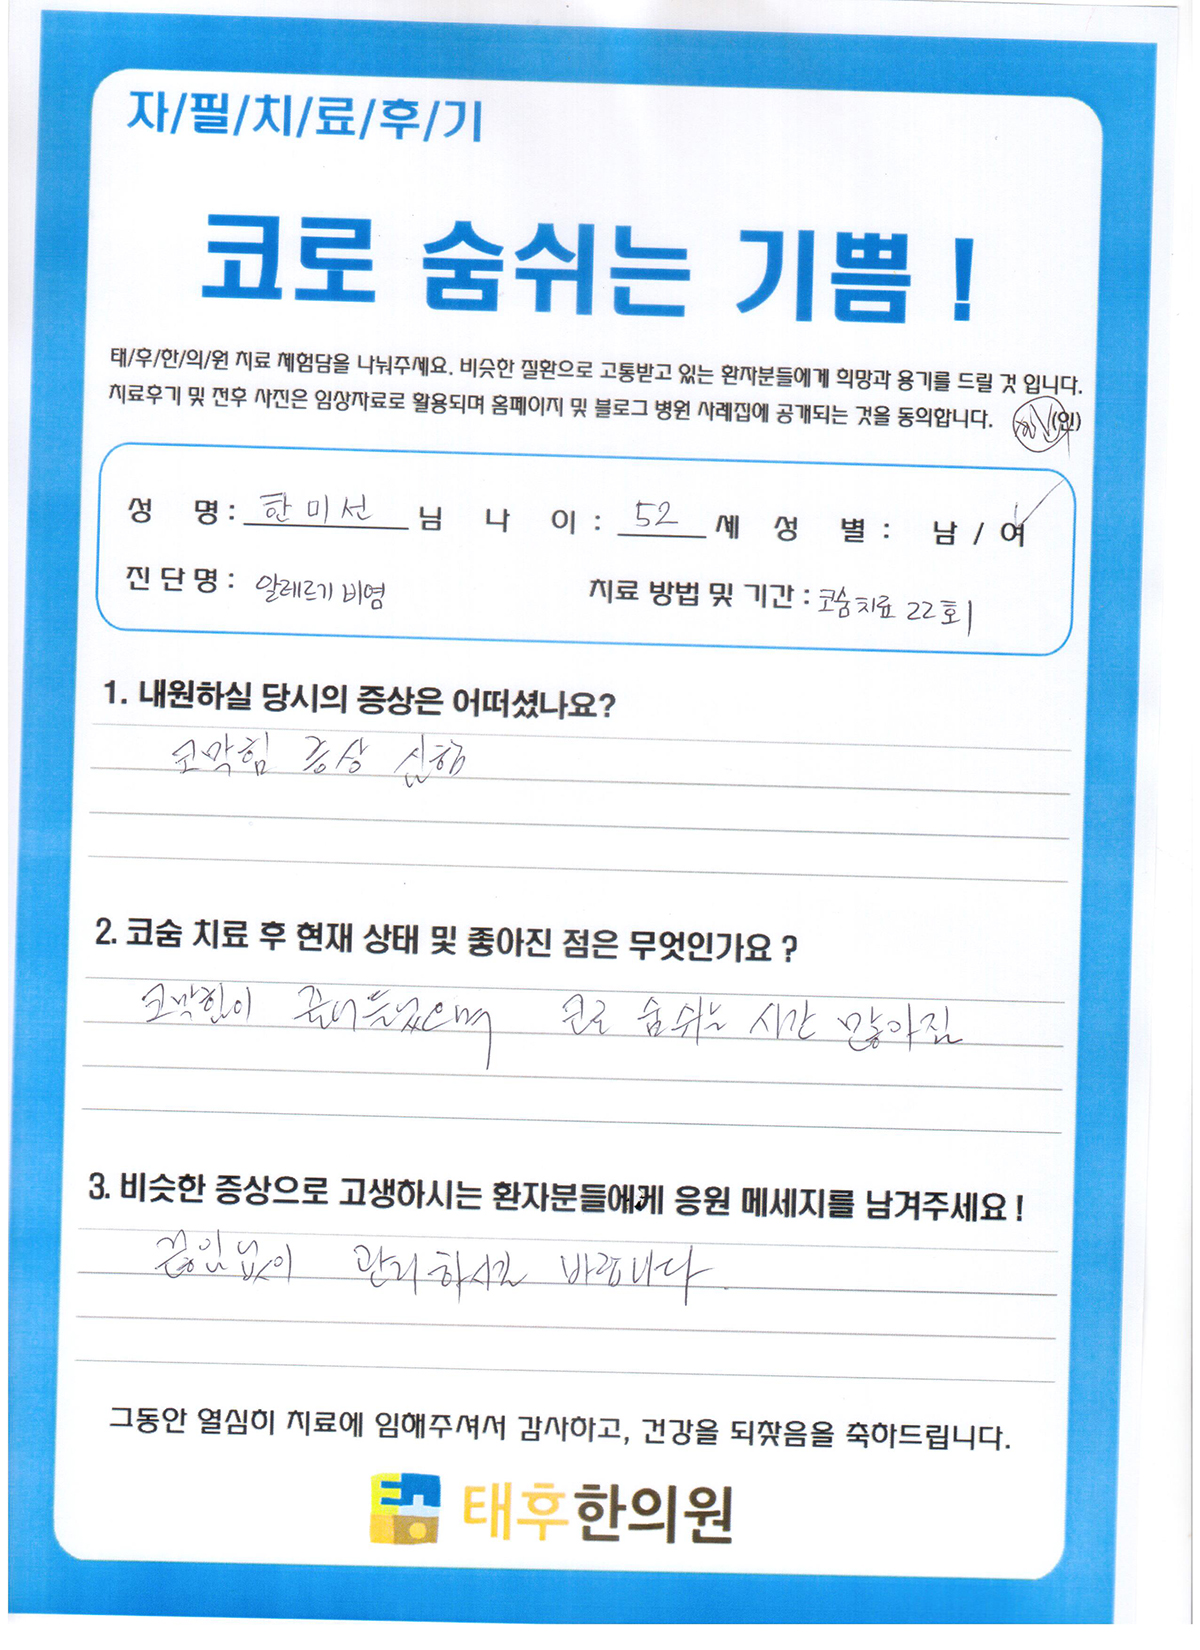 자/필/치/료/후/기
코로 숨쉬는 기쁨 !
태/후/한/의/원 치료 체험담을 나눠주세요. 비슷한 질환으로 고통받고 있는 환자분들에게 희망과 용기를 드릴 것 입니다.
치료후기 및 전후 사진은 임상자료로 활용되며 홈페이지 및 블로그 병원 사례집에 공개되는 것을 동의합니다. (인)
성 명 : 한미선 님 나 이 : 52 세 성 별 : 남 / 여
진 단 명 : 알레르기 비염 치료 방법 및 기간 : 코숨치료 22회
1. 내원하실 당시의 증상은 어떠셨나요?
코막힘 증상 심함
2. 코숨 치료 후 현재 상태 및 좋아진 점은 무엇인가요 ?
코막힘이 줄어들었으며 코로 숨쉬는 시간 많아짐
3. 비슷한 증상으로 고생하시는 환자분들에게 응원 메세지를 남겨주세요 !
끊임없이 관리하시길 바랍니다.
그동안 열심히 치료에 임해주셔서 감사하고, 건강을 되찾음을 축하드립니다.
태후한의원